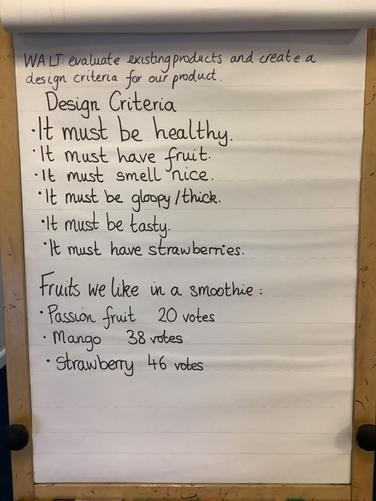 WALT: evaluate existing products and create a
design criteria for our product.
Design Criteria
·It must be healthy.
·It must have fruit.
·It must smell nice.
·It must be gloopy/thick.
·It must be tasty.
·It must have strawberries.
Fruits we like in a smoothie:
·Passion fruit 20 votes
·Mango 38 votes
·Strawberry 46 votes